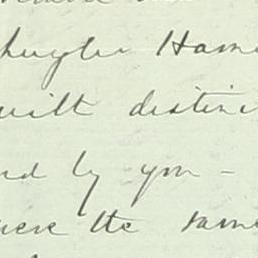 chuyler Ham
with distin
nd by you -
were the same